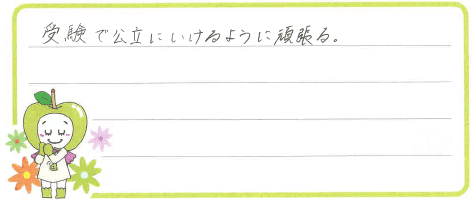 受験で公立にいけるように頑張る。